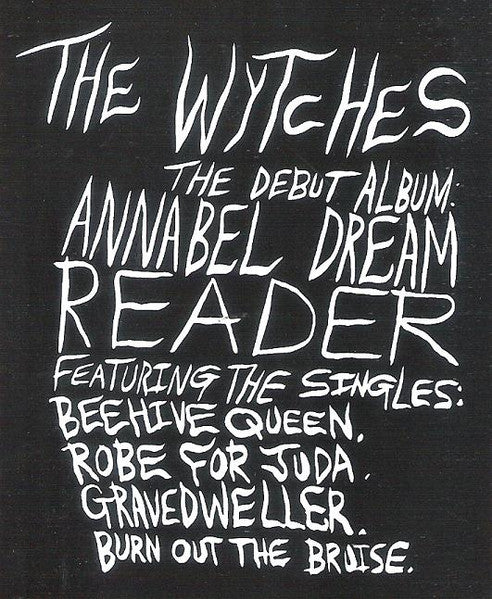 THE WYTCHES
THE DEBUT ALBUM:
ANNABEL DREAM
READER
FEATURING THE SINGLES:
BEEHIVE QUEEN.
ROBE FOR JUDA.
GRAVEDWELLER.
BURN OUT THE BRUISE.